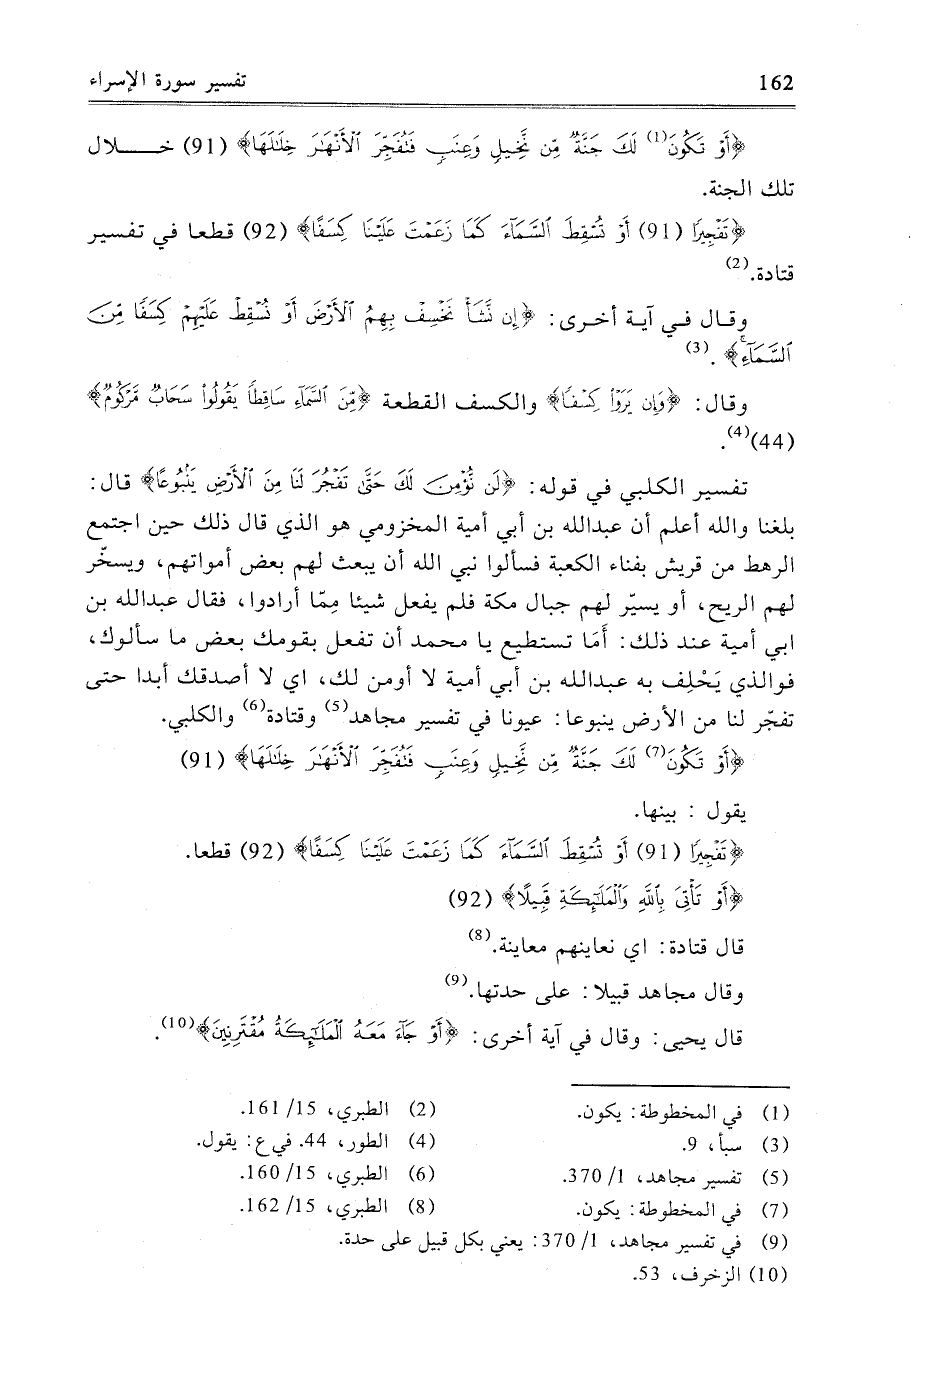 162 تفسير سورة الإسراء
﴿أَوْ تَكُونَ(1) لَكَ جَنَّةٌ مِّن نَّخِيلٍ وَعِنَبٍ فَتُفَجِّرَ ٱلْأَنْهَٰرَ خِلَٰلَهَا﴾ (91) خـــلال
تلك الجنة.
﴿تَفْجِيرًا (91) أَوْ تُسْقِطَ ٱلسَّمَآءَ كَمَا زَعَمْتَ عَلَيْنَا كِسَفًا﴾ (92) قطعا في تفسير
قتادة.(2)
وقال في آية أخرى: ﴿إِن نَّشَأْ نَخْسِفْ بِهِمُ ٱلْأَرْضَ أَوْ نُسْقِطْ عَلَيْهِمْ كِسَفًا مِّنَ
ٱلسَّمَآءِ﴾ .(3)
وقال: ﴿وَإِن يَرَوْاْ كِسْفًا﴾ والكسف القطعة ﴿مِّنَ ٱلسَّمَآءِ سَاقِطًا يَقُولُواْ سَحَابٌ مَّرْكُومٌ﴾
(44)(4).
تفسير الكلبي في قوله: ﴿لَن نُّؤْمِنَ لَكَ حَتَّىٰ تَفْجُرَ لَنَا مِنَ ٱلْأَرْضِ يَنۢبُوعًا﴾ قال:
بلغنا والله أعلم أن عبدالله بن أبي أمية المخزومي هو الذي قال ذلك حين اجتمع
الرهط من قريش بفناء الكعبة فسألوا نبي الله أن يبعث لهم بعض أمواتهم، ويسخّر
لهم الريح، أو يسيّر لهم جبال مكة فلم يفعل شيئا مِمّا أرادوا، فقال عبدالله بن
ابي أمية عند ذلك: أَمَا تستطيع يا محمد أن تفعل بقومك بعض ما سألوك،
فوالذي يَحْلِف به عبدالله بن أبي أمية لا أومن لك، اي لا أصدقك أبدا حتى
تفجّر لنا من الأرض ينبوعا: عيونا في تفسير مجاهد(5) وقتادة(6) والكلبي.
﴿أَوْ تَكُونَ(7) لَكَ جَنَّةٌ مِّن نَّخِيلٍ وَعِنَبٍ فَتُفَجِّرَ ٱلْأَنْهَٰرَ خِلَٰلَهَا﴾ (91)
يقول : بينها.
﴿تَفْجِيرًا (91) أَوْ تُسْقِطَ ٱلسَّمَآءَ كَمَا زَعَمْتَ عَلَيْنَا كِسَفًا﴾ (92) قطعا.
﴿أَوْ تَأْتِىَ بِٱللَّهِ وَٱلْمَلَٰٓئِكَةِ قَبِيلًا﴾ (92)
قال قتادة: اي نعاينهم معاينة.(8)
وقال مجاهد قبيلا: على حدتها.(9)
قال يحيى: وقال في آية أخرى: ﴿أَوْ جَآءَ مَعَهُ ٱلْمَلَٰٓئِكَةُ مُقْتَرِنِينَ﴾(10).
(1) في المخطوطة: يكون. (2) الطبري، 15/ 161.
(3) سبأ، 9. (4) الطور، 44. في ع: يقول.
(5) تفسير مجاهد، 1/ 370. (6) الطبري، 15/ 160.
(7) في المخطوطة: يكون. (8) الطبري، 15/ 162.
(9) في تفسير مجاهد، 1/ 370: يعني بكل قبيل على حدة.
(10) الزخرف، 53.